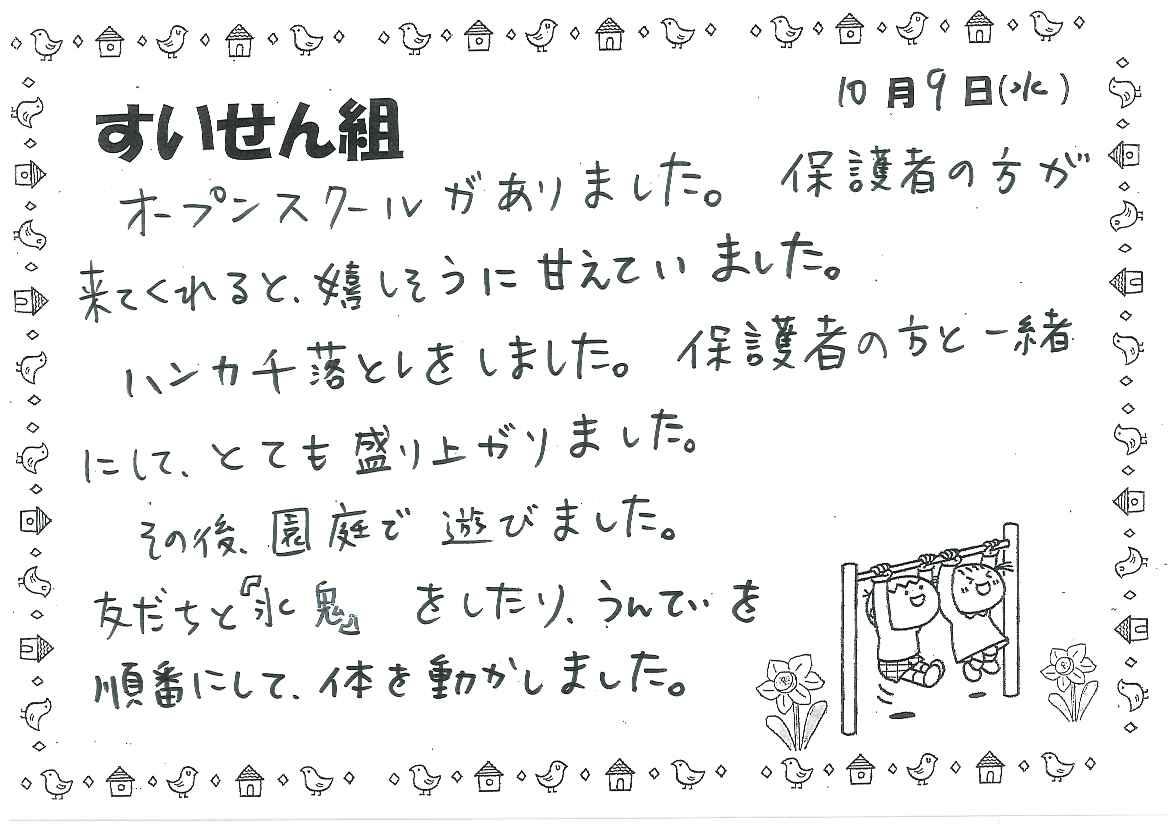 10月9日(水)
すいせん組
オープンスクールがありました。 保護者の方が
来てくれると、嬉しそうに甘えていました。
ハンカチ落としをしました。 保護者の方と一緒
にして、とても盛り上がりました。
その後、園庭で遊びました。
友だちと『氷鬼』をしたり、うんていを
順番にして、体を動かしました。